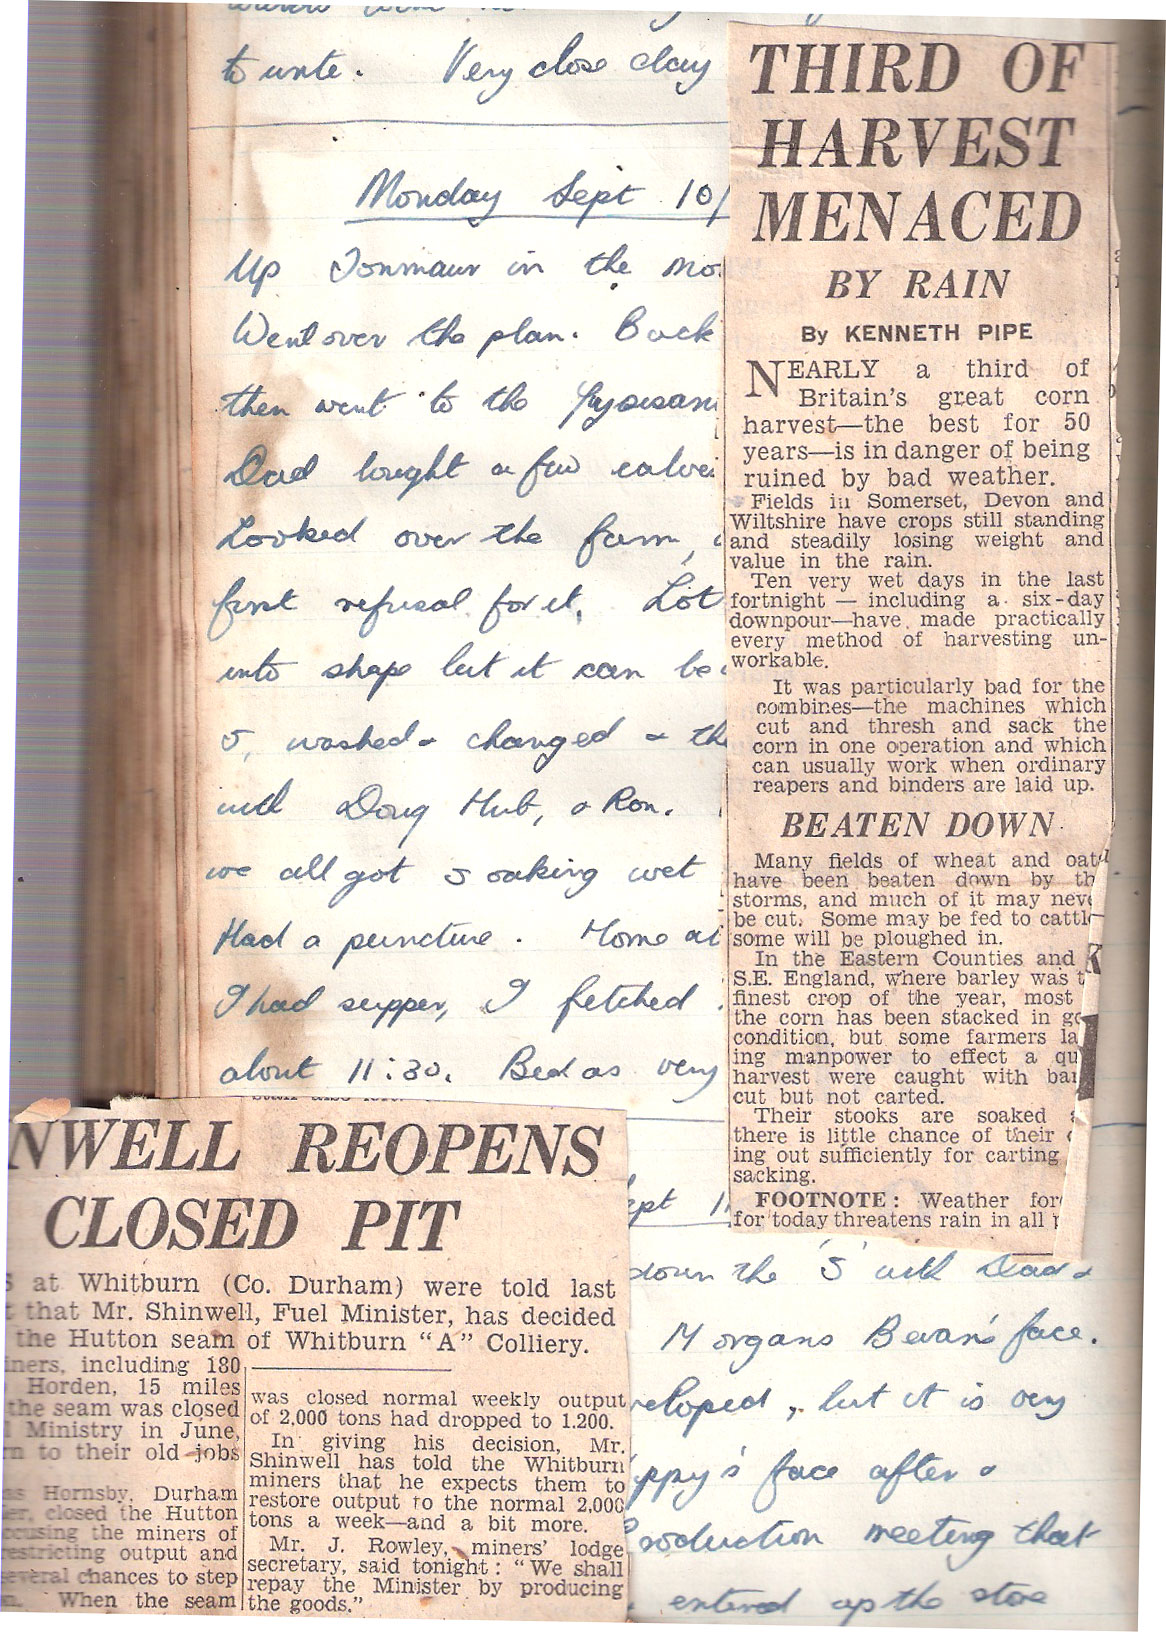 to write. Very close day
Monday Sept 10/
Up Tonmawr in the mo
Went over the plan. Back
then went to the
Dad bought a few calves
Looked over the farm,
first refusal for it. Lot
into shape but it can be
5, washed & changed & th
with Doug Hub, & Ron.
we all got soaking wet
Had a puncture. Home at
I had supper, I fetched
about 11:30. Bed as very
ept 11
down the 5' with Dad &
Morgans Bevan's face.
veloped, but it is very
ppy's face after a
Production meeting that
entered up the store
THIRD OF
HARVEST
MENACED
BY RAIN
By KENNETH PIPE
NEARLY a third of
Britain's great corn
harvest—the best for 50
years—is in danger of being
ruined by bad weather.
Fields in Somerset, Devon and
Wiltshire have crops still standing
and steadily losing weight and
value in the rain.
Ten very wet days in the last
fortnight — including a six-day
downpour—have made practically
every method of harvesting un-
workable.
It was particularly bad for the
combines—the machines which
cut and thresh and sack the
corn in one operation and which
can usually work when ordinary
reapers and binders are laid up.
BEATEN DOWN
Many fields of wheat and oat
have been beaten down by th
storms, and much of it may neve
be cut. Some may be fed to cattle
some will be ploughed in.
In the Eastern Counties and
S.E. England, where barley was t
finest crop of the year, most
the corn has been stacked in go
condition, but some farmers la
ing manpower to effect a qu
harvest were caught with bar
cut but not carted.
Their stooks are soaked a
there is little chance of their
ing out sufficiently for carting
sacking.
FOOTNOTE: Weather for
for today threatens rain in all p
NWELL REOPENS
CLOSED PIT
S at Whitburn (Co. Durham) were told last
t that Mr. Shinwell, Fuel Minister, has decided
the Hutton seam of Whitburn "A" Colliery.
iners, including 180
Horden, 15 miles
the seam was closed
l Ministry in June,
rn to their old jobs
as Hornsby, Durham
er, closed the Hutton
ccusing the miners of
restricting output and
several chances to step
n. When the seam
was closed normal weekly output
of 2,000 tons had dropped to 1.200.
In giving his decision, Mr.
Shinwell has told the Whitburn
miners that he expects them to
restore output to the normal 2,000
tons a week—and a bit more.
Mr. J. Rowley, miners' lodge
secretary, said tonight: "We shall
repay the Minister by producing
the goods."